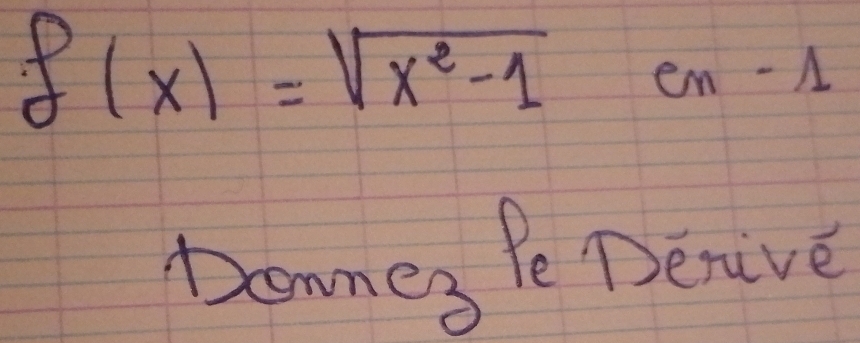 f(x) = √(x² - 1) en - 1
Donnez le Dérivé